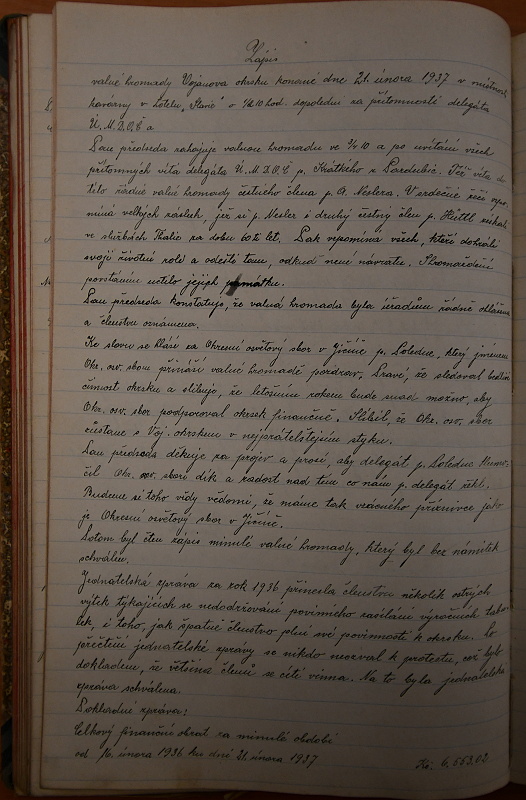 Zápis
valné hromady Vojanova okrsku konané dne 21. února 1937 v místnost.
kavárny v hotelu „Slavie" o 1/2 10 hod. dopoledne za přítomnosti delegáta
Ú. M. D. O. Č a
Pan předseda zahajuje valnou hromadu ve 3/4 10 a po uvítání všech
přítomných vítá delegáta Ú. M. D. O. Č p. Krátkého z Pardubic. Též vítá do
této řádné valné hromady čestného člena p. A. Neslera. V srdečné řeči vzpo-
míná velkých zásluh, jež si p. Nesler i druhý čestný člen p. Hüttl získali
ve službách Thalie za dobu 60ti let. Pak vzpomíná všech, kteří dohráli
svoji životní roli a odešli tam, odkud není návratu. Shromáždění
povstáním uctilo jejich památku.
Pan předseda konstatuje, že valná hromada byla úřadům řádně ohlášena
a členstvu oznámena.
Ke slovu se hlásí za Okresní osvětový sbor v Jičíně p. Poledne, který jménem
Okr. osv. sboru přináší valné hromadě pozdrav. Praví, že sledoval bedlivě
činnost okrsku a slibuje, že letošním rokem bude snad možno, aby
Okr. osv. sbor podporoval okrsek finančně. Slíbil, že Okr. osv. sbor
zůstane s Voj. okrskem v nejpřátelštějším styku.
Pan předseda děkuje za projev a prosí, aby delegát p. Poledne tlumo-
čil Okr. osv. sboru dík a radost nad tím co nám p. delegát řekl.
Budeme si toho vždy vědomi, že máme tak vzácného příznivce jako
je Okresní osvětový sbor v Jičíně.
Potom byl čten zápis minulé valné hromady, který byl bez námitek
schválen.
Jednatelská zpráva za rok 1936 přinesla členstvu několik ostrých
výtek týkajících se nedodržování povinného zasílání výročních tabu-
lek, i toho, jak špatně členstvo plní své povinnosti k okrsku. Po
přečtení jednatelské zprávy se nikdo neozval k protestu, což bylo
dokladem, že většina členů se cítí vinna. Na to byla jednatelská
zpráva schválena.
Pokladní zpráva:
Celkový finanční obrat za minulé období
od 16. února 1936 ku dni 21. února 1937 Kč: 6.553,02